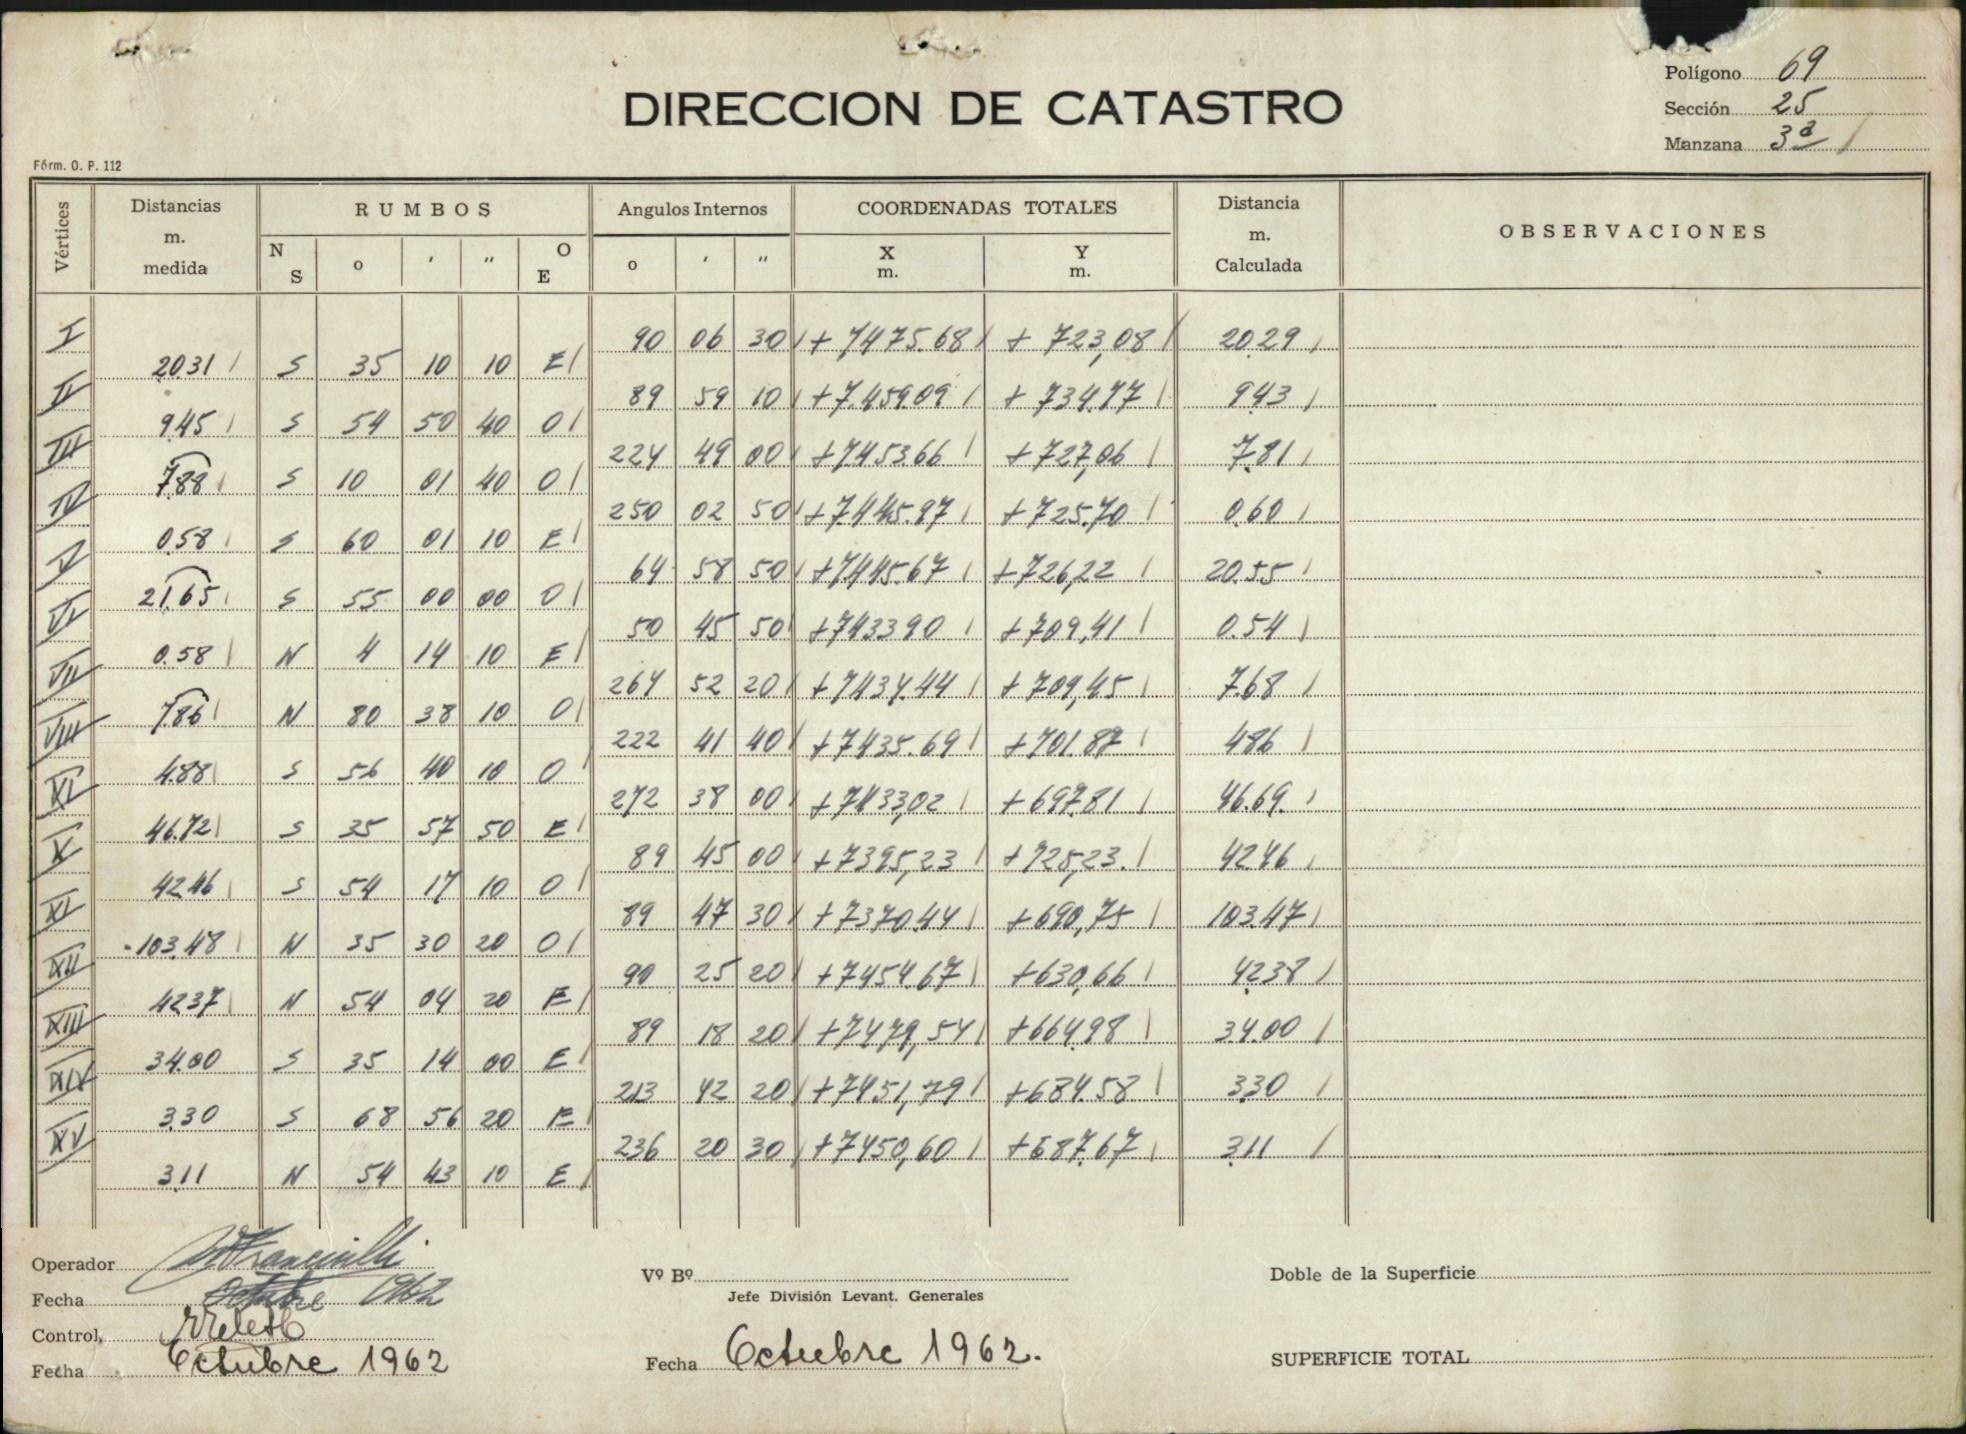 Polígono 69
DIRECCION DE CATASTRO
Sección 25
Manzana 3ª
Fórm. O. P. 112
Vértices Distancias m. medida RUMBOS Angulos Internos COORDENADAS TOTALES Distancia m. Calculada OBSERVACIONES
N S o ' '' O E o ' '' X m. Y m.
I 90 06 30 +7475.68 +723,08 20.29
20.31 S 35 10 10 E
II 89 59 10 +7.459.09 +734.77 9.43
9.45 S 54 50 40 O
III 224 49 00 +7453.66 +727,06 7.81
7.88 S 10 01 40 O
IV 250 02 50 +7445.97 +725.70 0.60
0.58 S 60 01 10 E
V 64 58 50 +7445.67 +726,22 20.55
21.65 S 55 00 00 O
VI 50 45 50 +7433.90 +709,41 0.54
0.58 N 4 14 10 E
VII 264 52 20 +7434.44 +709,45 7.68
7.86 N 80 38 10 O
VIII 222 41 40 +7435.69 +701.87 4.86
4.88 S 56 40 10 O
XI 272 38 00 +7433,02 +697.81 46.69
46.72 S 35 57 50 E
X 89 45 00 +7395,23 +725,23 42.46
42.46 S 54 17 10 O
XI 89 47 30 +7370.44 +690,75 103.47
103.48 N 35 30 20 O
XII 90 25 20 +7454.67 +630,66 42.38
42.37 N 54 04 20 E
XIII 89 18 20 +7479,54 +664.98 34.00
34.00 S 35 14 00 E
XIV 213 42 20 +7451,79 +684.58 3.30
3.30 S 68 56 20 E
XV 236 20 30 +7450,60 +687.67 3.11
3.11 N 54 43 10 E
Operador
Vº Bº
Doble de la Superficie
Fecha Octubre 1962
Jefe División Levant. Generales
Control,
Fecha Octubre 1962
Fecha Octubre 1962.
SUPERFICIE TOTAL